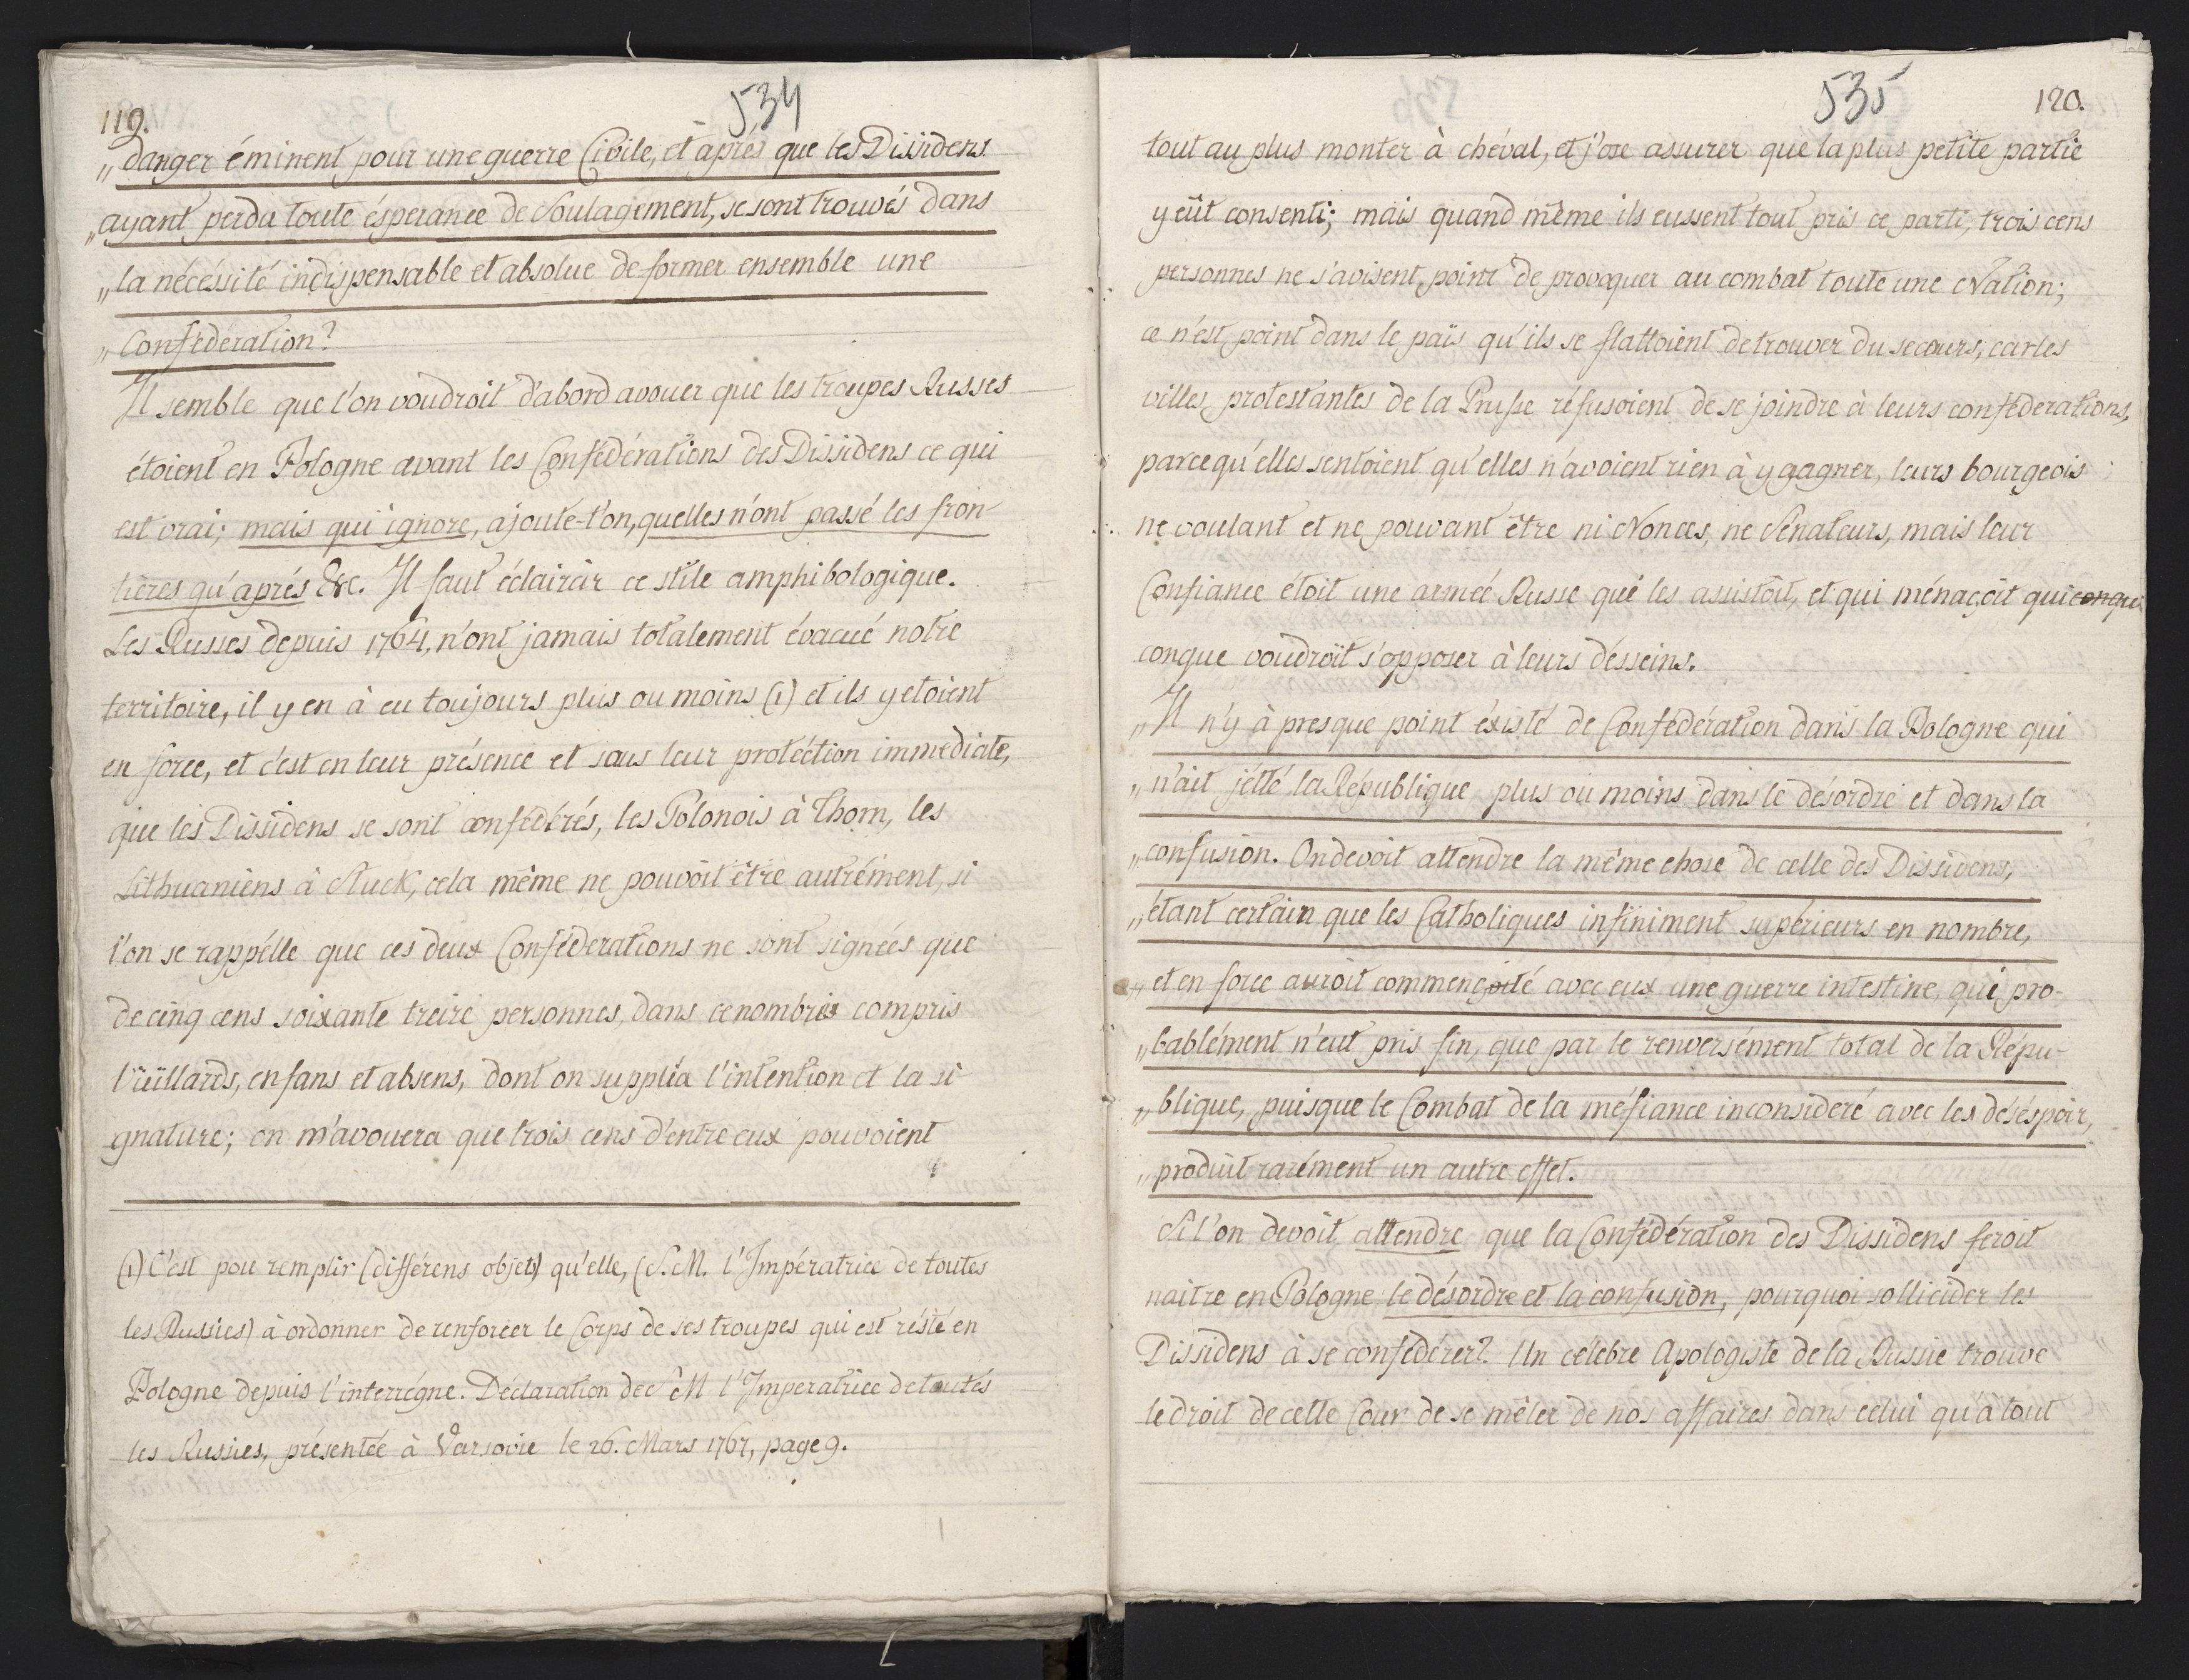 119.
534
„danger éminent pour une guerre Civile, et aprés que les Dissidens
„ayant perdu toute ésperance de Soulagement, se sont trouvés dans
„la nécéssité indispensable et absolue de former ensemble une
„Confederation?
Il semble que l'on voudroit d'abord avouer que les troupes Russes
étoient en Pologne avant les Confédérations des Dissidens ce qui
est vrai; mais qui ignore, ajoute-t'on, quelles n'ont passé les fron-
tieres qu'aprés &c. Il faut éclaircir ce stile amphibologique.
Les Russes depuis 1764, n'ont jamais totalement évacué notre
territoire, il y en à eu toujours plus ou moins (1) et ils y etoient
en force, et c'est en leur présence et sous leur protéction immediate,
que les Dissidens se sont confédérés, les Polonois à Thorn, les
Lithuaniens à Sluck, cela même ne pouvoit être autrément, si
l'on se rappélle que ces deux Conféderations ne sont signées que
de cinq cens soixante treize personnes, dans ce nombre compris
Viëillards, enfans et absens, dont on suppléa l'intention et la si-
gnature; on m'avouera que trois cens d'entre eux pouvoient
(1) C'est pou remplir (différens objets) qu'elle, (S. M. l'Impératrice de toutes
les Russies) à ordonner de renforcer le Corps de ses troupes qui est résté en
Pologne depuis l'interrégne. Déclaration de S M l'Imperatrice de toutés
les Russies, présentée à Varsovie le 26. Mars 1767, page 9.
535
120.
tout au plus monter à chéval, et j'ose assurer que la plus petite partie
y eût consenti; mais quand même ils eussent tout pris ce parti, trois cens
personnes ne s'avisent point de provoquer au combat toute une Nation;
ce n'est point dans le païs qu'ils se flattoient de trouver du secours, car les
villes protestantes de la Prusse réfusoient de se joindre à leurs conféderations,
parcequ'elles sentoient qu'elles n'avoient rien à y gagner, leurs bourgeois
ne voulant et ne pouvant être ni Nonces, ne Sénateurs, mais leur
Confiance étoit une armeé Russe qui les assistoit, et qui ménaçoit quiconque
conque voudroit s'opposer à leurs désseins.
„Il n'y à presque point éxisté de Confédération dans la Pologne qui
„n'ait jétté la République plus ou moins dans le désordre et dans la
„confusion. On devoit attendre la même chose de celle des Dissidens,
„étant certain que les Catholiques infiniment supérieurs en nombre,
„et en force auroit commençoité avec eux une guerre intestine, qui pro-
„bablément n'eut pris fin, que par le renversément total de la Répu-
„blique, puisque le Combat de la méfiance inconsideré avec les déséspoir,
„produit rarément un autre effet.
Si l'on devoit attendre que la Confédération des Dissidens feroit
naitre en Pologne le désordre et la confusion, pourquoi sollicider les
Dissidens à se confédérer? Un célebre Apologiste de la Russie trouve
le droit de cette Cour de se mêler de nos affaires dans celui qu'à tout